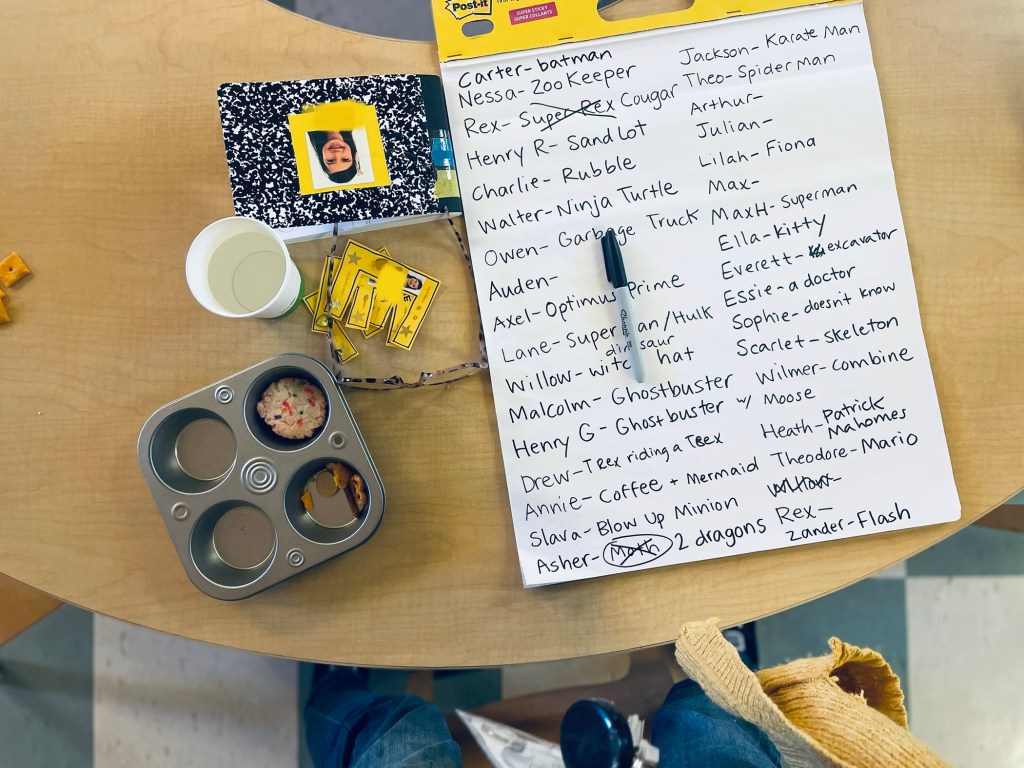 Post-it
SUPER STICKY
SUPER COLLANTS
Carter- batman
Nessa- Zoo Keeper
Rex- Super Rex Cougar
Henry R- Sandlot
Charlie- Rubble
Walter- Ninja Turtle
Owen- Garbage Truck
Auden-
Axel- Optimus Prime
Lane- Superman/Hulk
dinosaur
Willow- witch hat
Malcolm- Ghostbuster
Henry G- Ghostbuster w/
Drew- T Rex riding a T Rex
Annie- Coffee + Mermaid
Slava- Blow Up Minion
Asher- Moth 2 dragons
Jackson- Karate Man
Theo- Spider Man
Arthur-
Julian-
Lilah- Fiona
Max-
Max H- Superman
Ella- Kitty
Everett- excavator
Essie- a doctor
Sophie- doesn't know
Scarlet- Skeleton
Wilmer- combine
Moose
Heath- Patrick
Mahomes
Theodore- Mario
Rex-
Zander- Flash
Sharpie